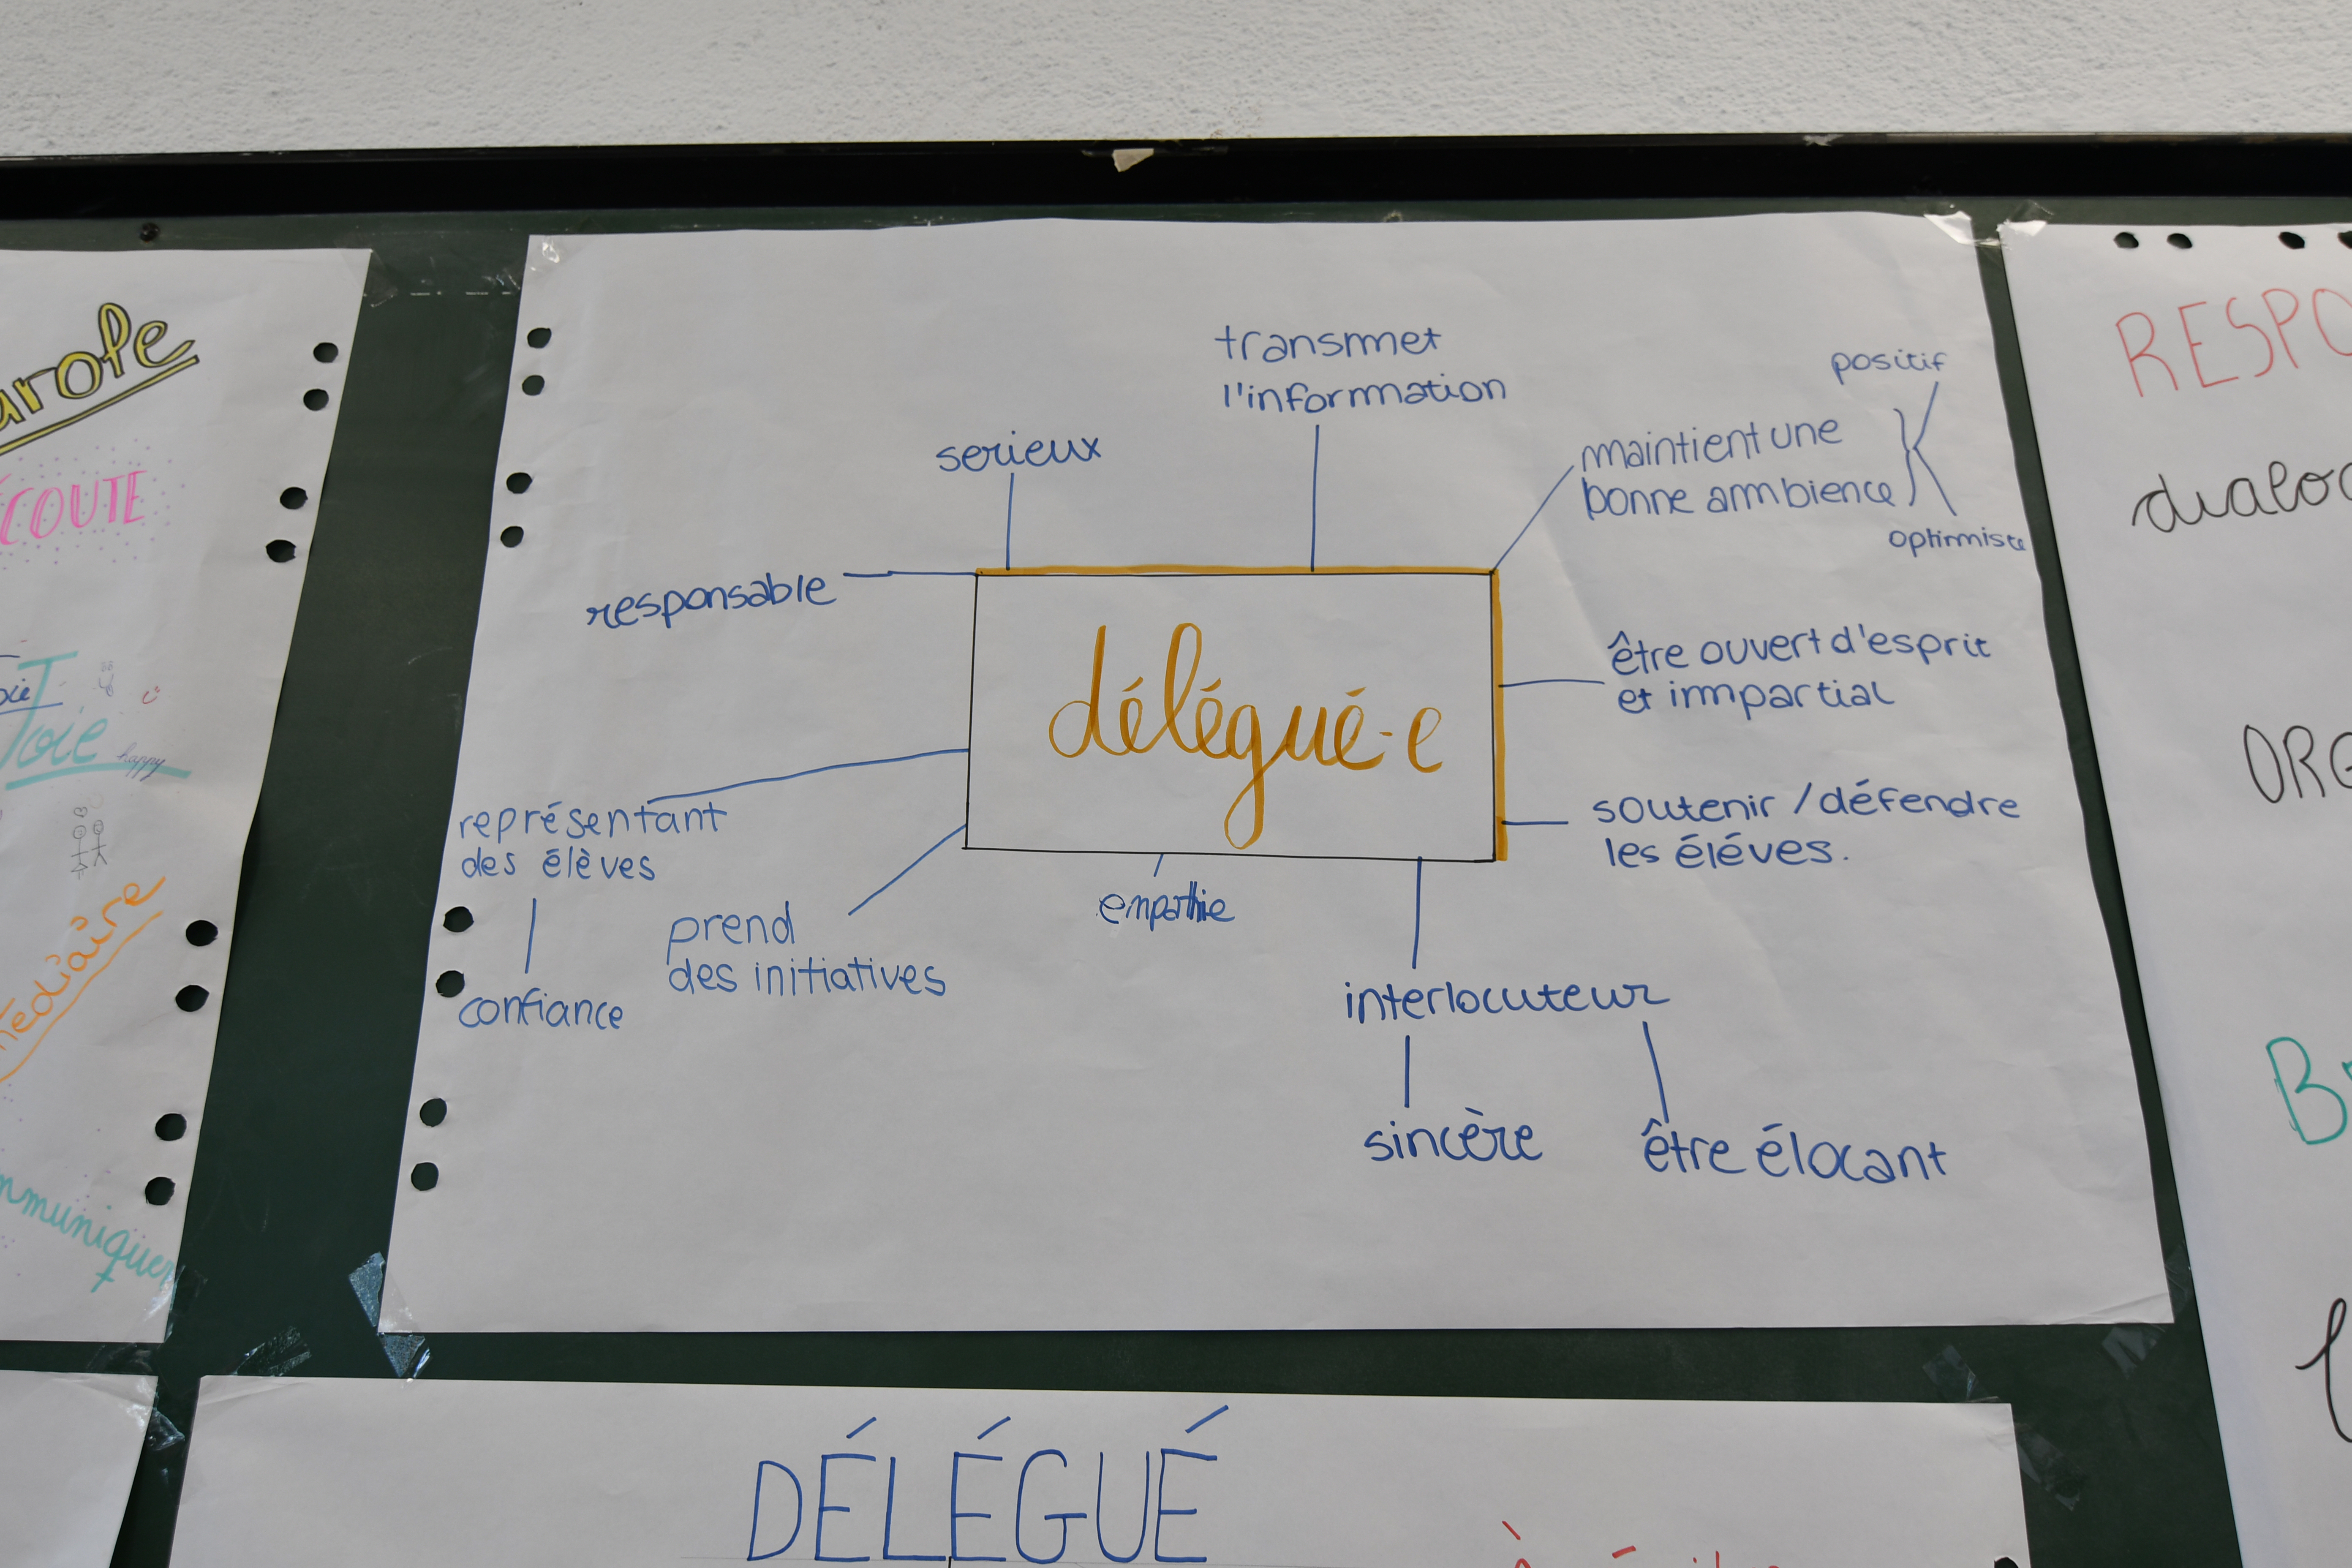 transmet
l'information
positif
serieux
maintient une
bonne ambience
optimiste
responsable
être ouvert d'esprit
et impartial
délégué-e
représentant
des élèves
soutenir / défendre
les éléves.
empathie
prend
des initiatives
confiance
interlocuteur
sincère
être élocant
DÉLÉGUÉ
arole
ÉCOUTE
Joie
happy
médiaire
mmuniquer
RESPO
dialog
ORG